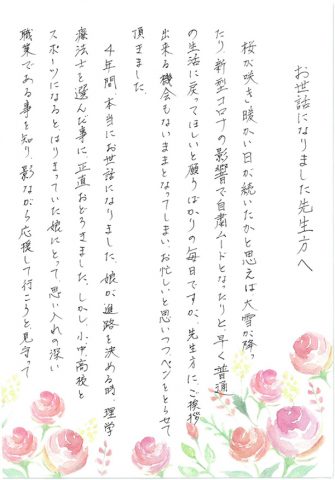 お世話になりました先生方へ
桜が咲き暖かい日が続いたかと思えば大雪が降っ
たり、新型コロナの影響で自粛ムードとなったりと、早く普通
の生活に戻ってほしいと願うばかりの毎日ですが、先生方にご挨拶
出来る機会もないままとなってしまい、お忙しいと思いつつペンをとらせて
頂きました。
4年間、本当にお世話になりました。娘が、進路を決める時、理学
療法士を選んだ事に、正直おどろきました。しかし、小・中・高校と
スポーツになるとはりきっていた娘にとって、思い入れの深い
職業である事を知り、影ながら応援して行こうと、見守って